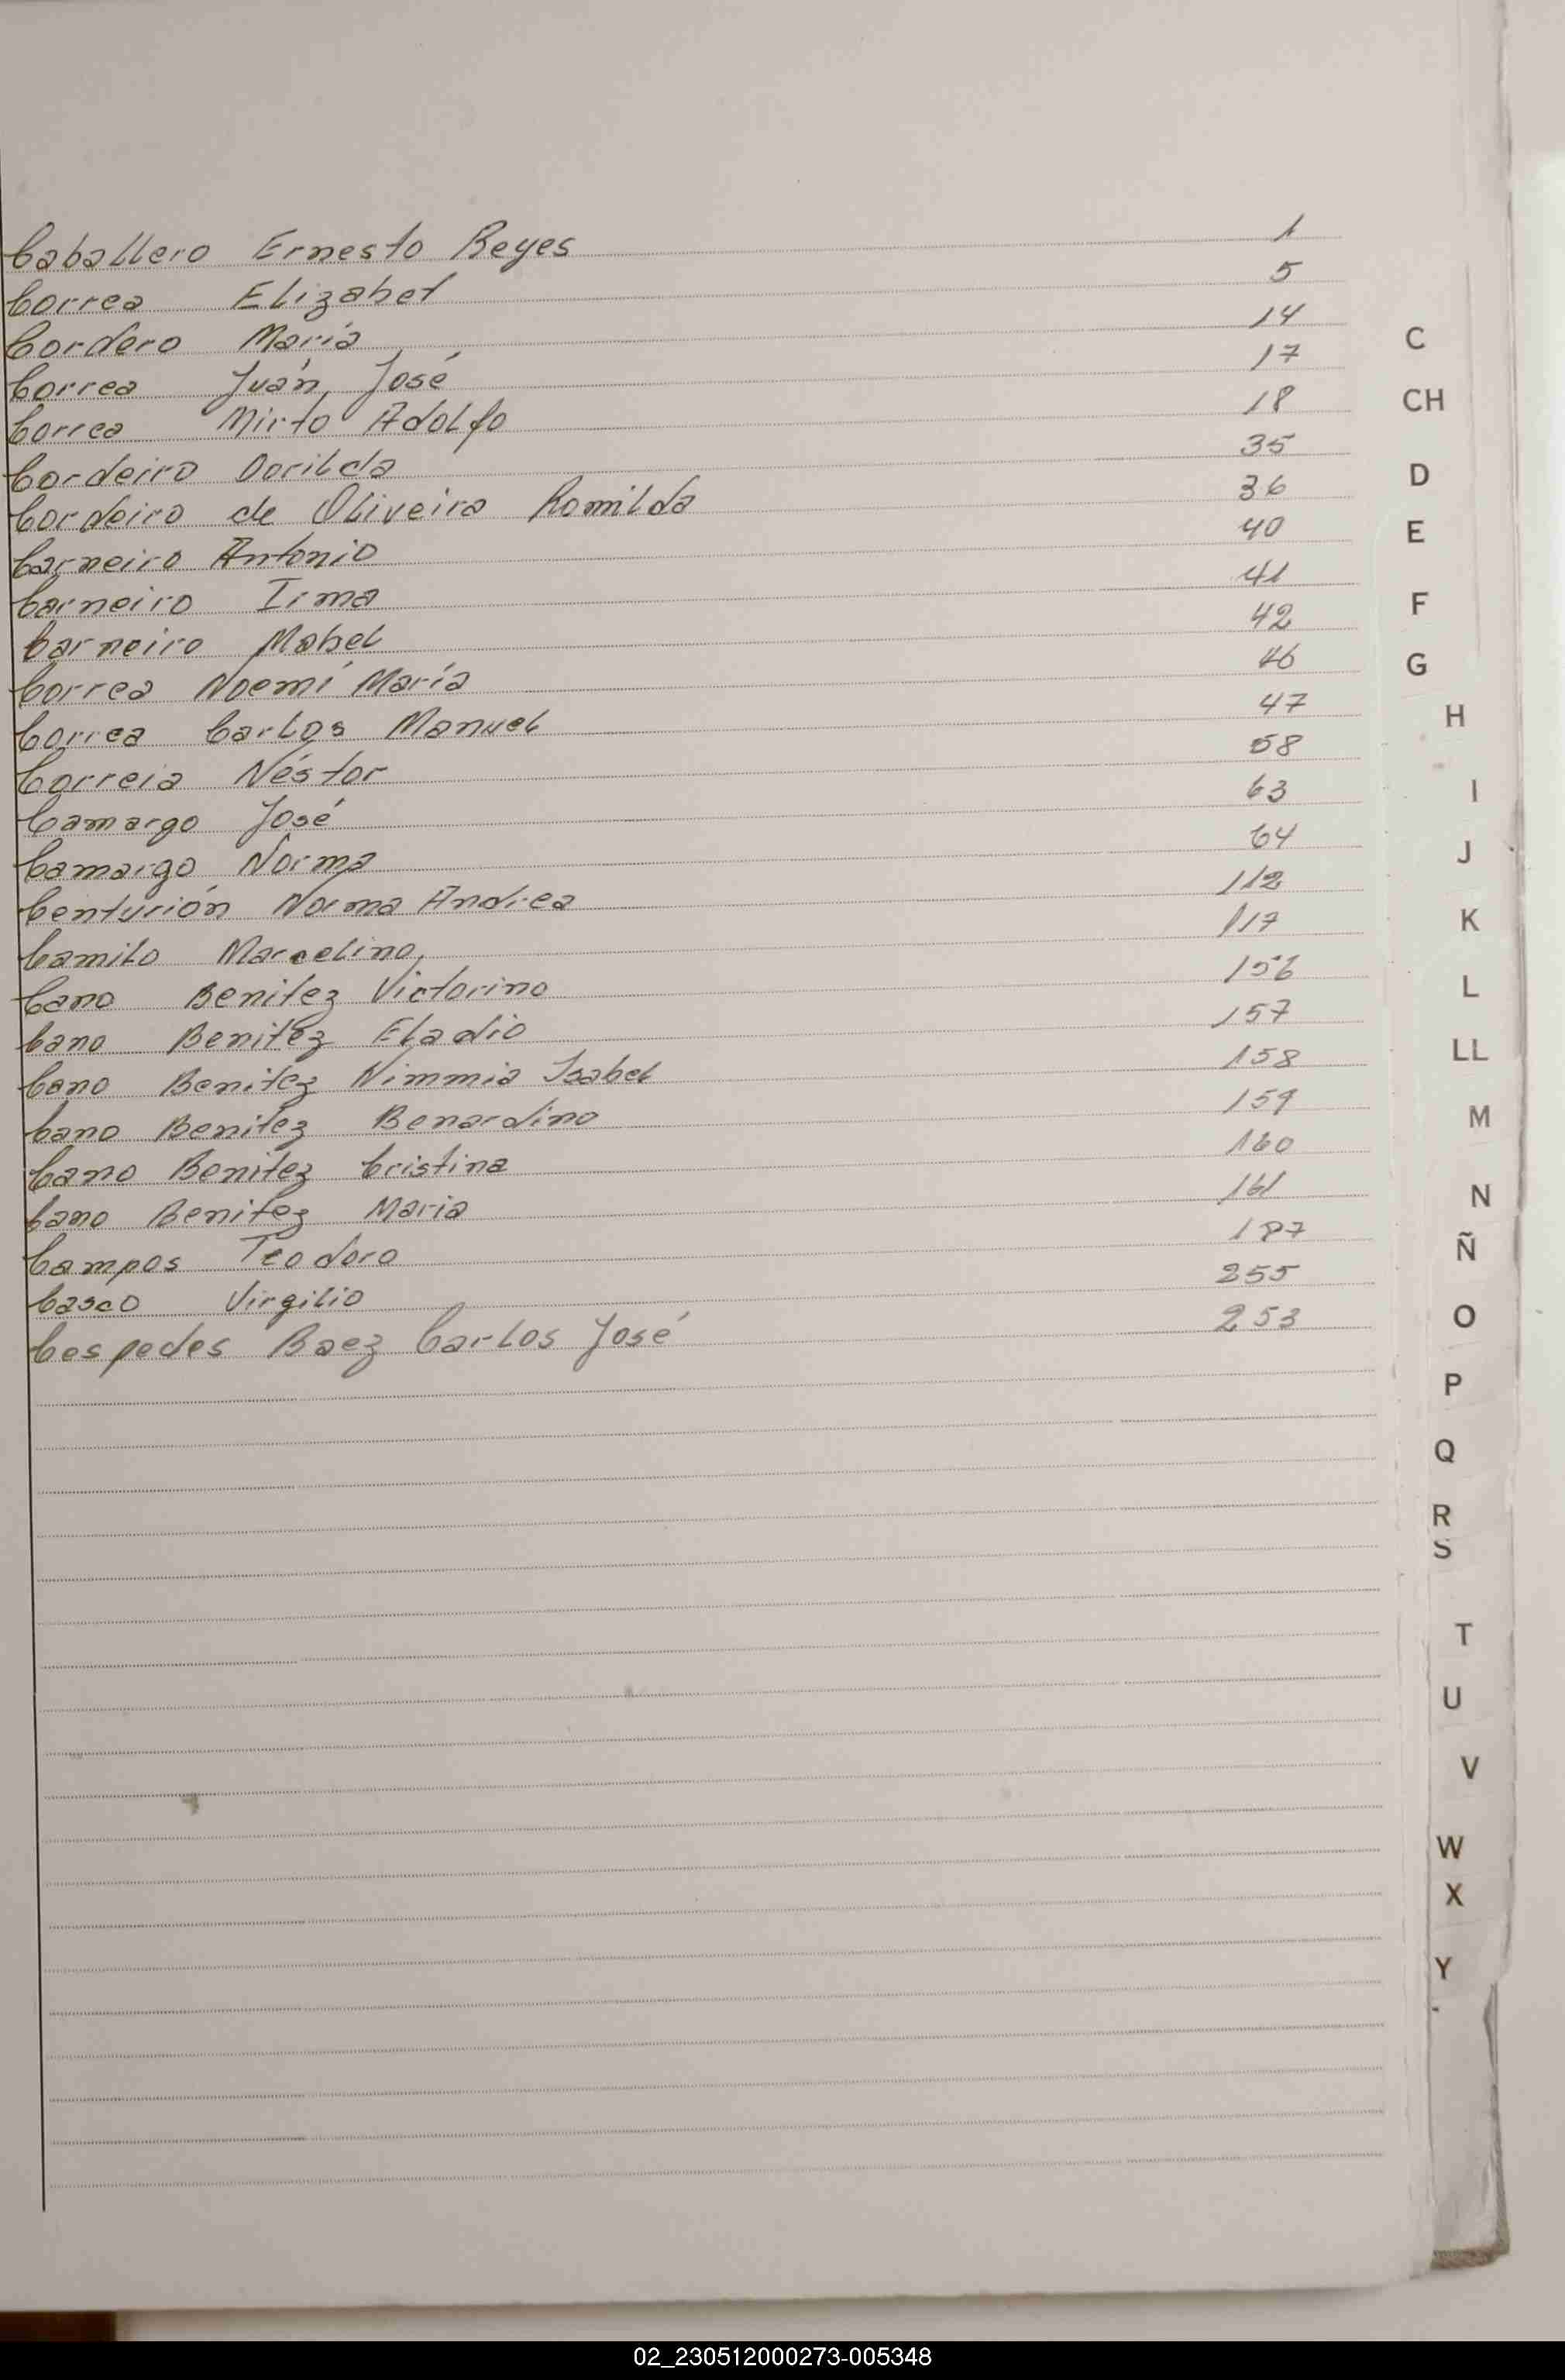 Caballero Ernesto Reyes 1
Correa Elizabet 5
Cordero María 14
Correa Juán José 17
Correa Mirto Adolfo 18
Cordeiro Dorilda 35
Cordeiro de Oliveira Romilda 36
Carneiro Antonio 40
Carneiro Irma 41
Carneiro Mabel 42
Correa Noemí María 46
Correa Carlos Manuel 47
Correia Néstor 58
Camargo José 63
Camargo Norma 64
Centurión Norma Andrea 112
Camilo Marcelino 117
Cano Benitez Victorino 156
Cano Benitez Eladio 157
Cano Benitez Nimmia Isabel 158
Cano Benitez Benardino 159
Cano Benitez Cristina 160
Cano Benitez Maria 161
Campos Teodoro 187
Casco Virgilio 255
Cespedes Baez Carlos José 253
C
CH
D
E
F
G
H
I
J
K
L
LL
M
N
Ñ
O
P
Q
R
S
T
U
V
W
X
Y
02_230512000273-005348